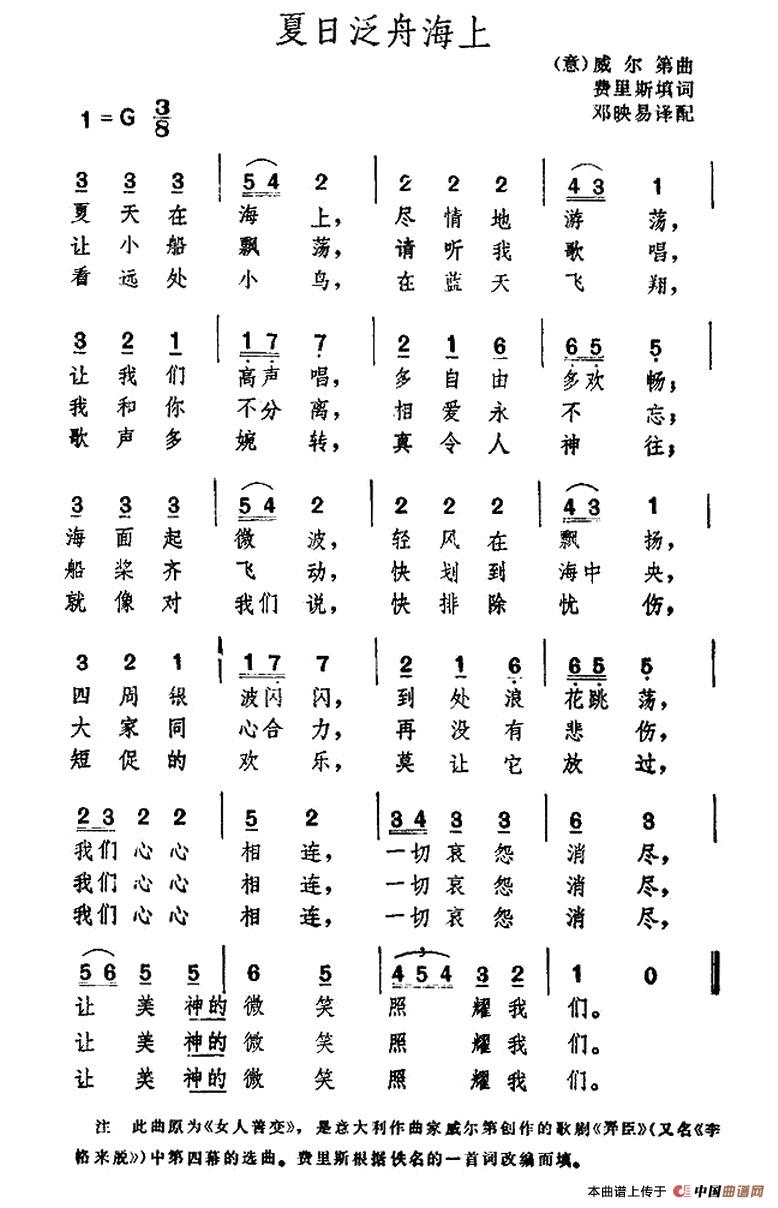 夏日泛舟海上
(意)威尔第曲
费里斯填词
邓映易译配
1=G 3/8
3 3 3 | 5 4 2 | 2 2 2 | 4 3 1 |
夏天在 海 上, 尽情地 游 荡,
让小船 飘 荡, 请听我 歌 唱,
看远处 小 鸟, 在蓝天 飞 翔,
3 2 1 | 1 7 7 | 2 1 6 | 6 5 5 |
让我们 高声唱, 多自由 多欢畅;
我和你 不分离, 相爱永 不 忘;
歌声多 婉 转, 真令人 神 往;
3 3 3 | 5 4 2 | 2 2 2 | 4 3 1 |
海面起 微 波, 轻风在 飘 扬,
船桨齐 飞 动, 快划到 海中央,
就像对 我们说, 快排除 忧 伤,
3 2 1 | 1 7 7 | 2 1 6 | 6 5 5 |
四周银 波闪闪, 到处浪 花跳荡,
大家同 心合力, 再没有 悲 伤,
短促的 欢 乐, 莫让它 放 过,
2 3 2 2 | 5 2 | 3 4 3 3 | 6 3 |
我们心心 相 连, 一切哀怨 消 尽,
我们心心 相 连, 一切哀怨 消 尽,
我们心心 相 连, 一切哀怨 消 尽,
5 6 5 5 | 6 5 | 3 4 5 4 3 2 | 1 0 ‖
让 美神的微 笑 照 耀我 们。
让 美神的微 笑 照 耀我 们。
让 美神的微 笑 照 耀我 们。
注 此曲原为《女人善变》,是意大利作曲家威尔第创作的歌剧《弄臣》(又名《李
格来脱》)中第四幕的选曲。费里斯根据佚名的一首词改编而填。
本曲谱上传于 CE 中国曲谱网